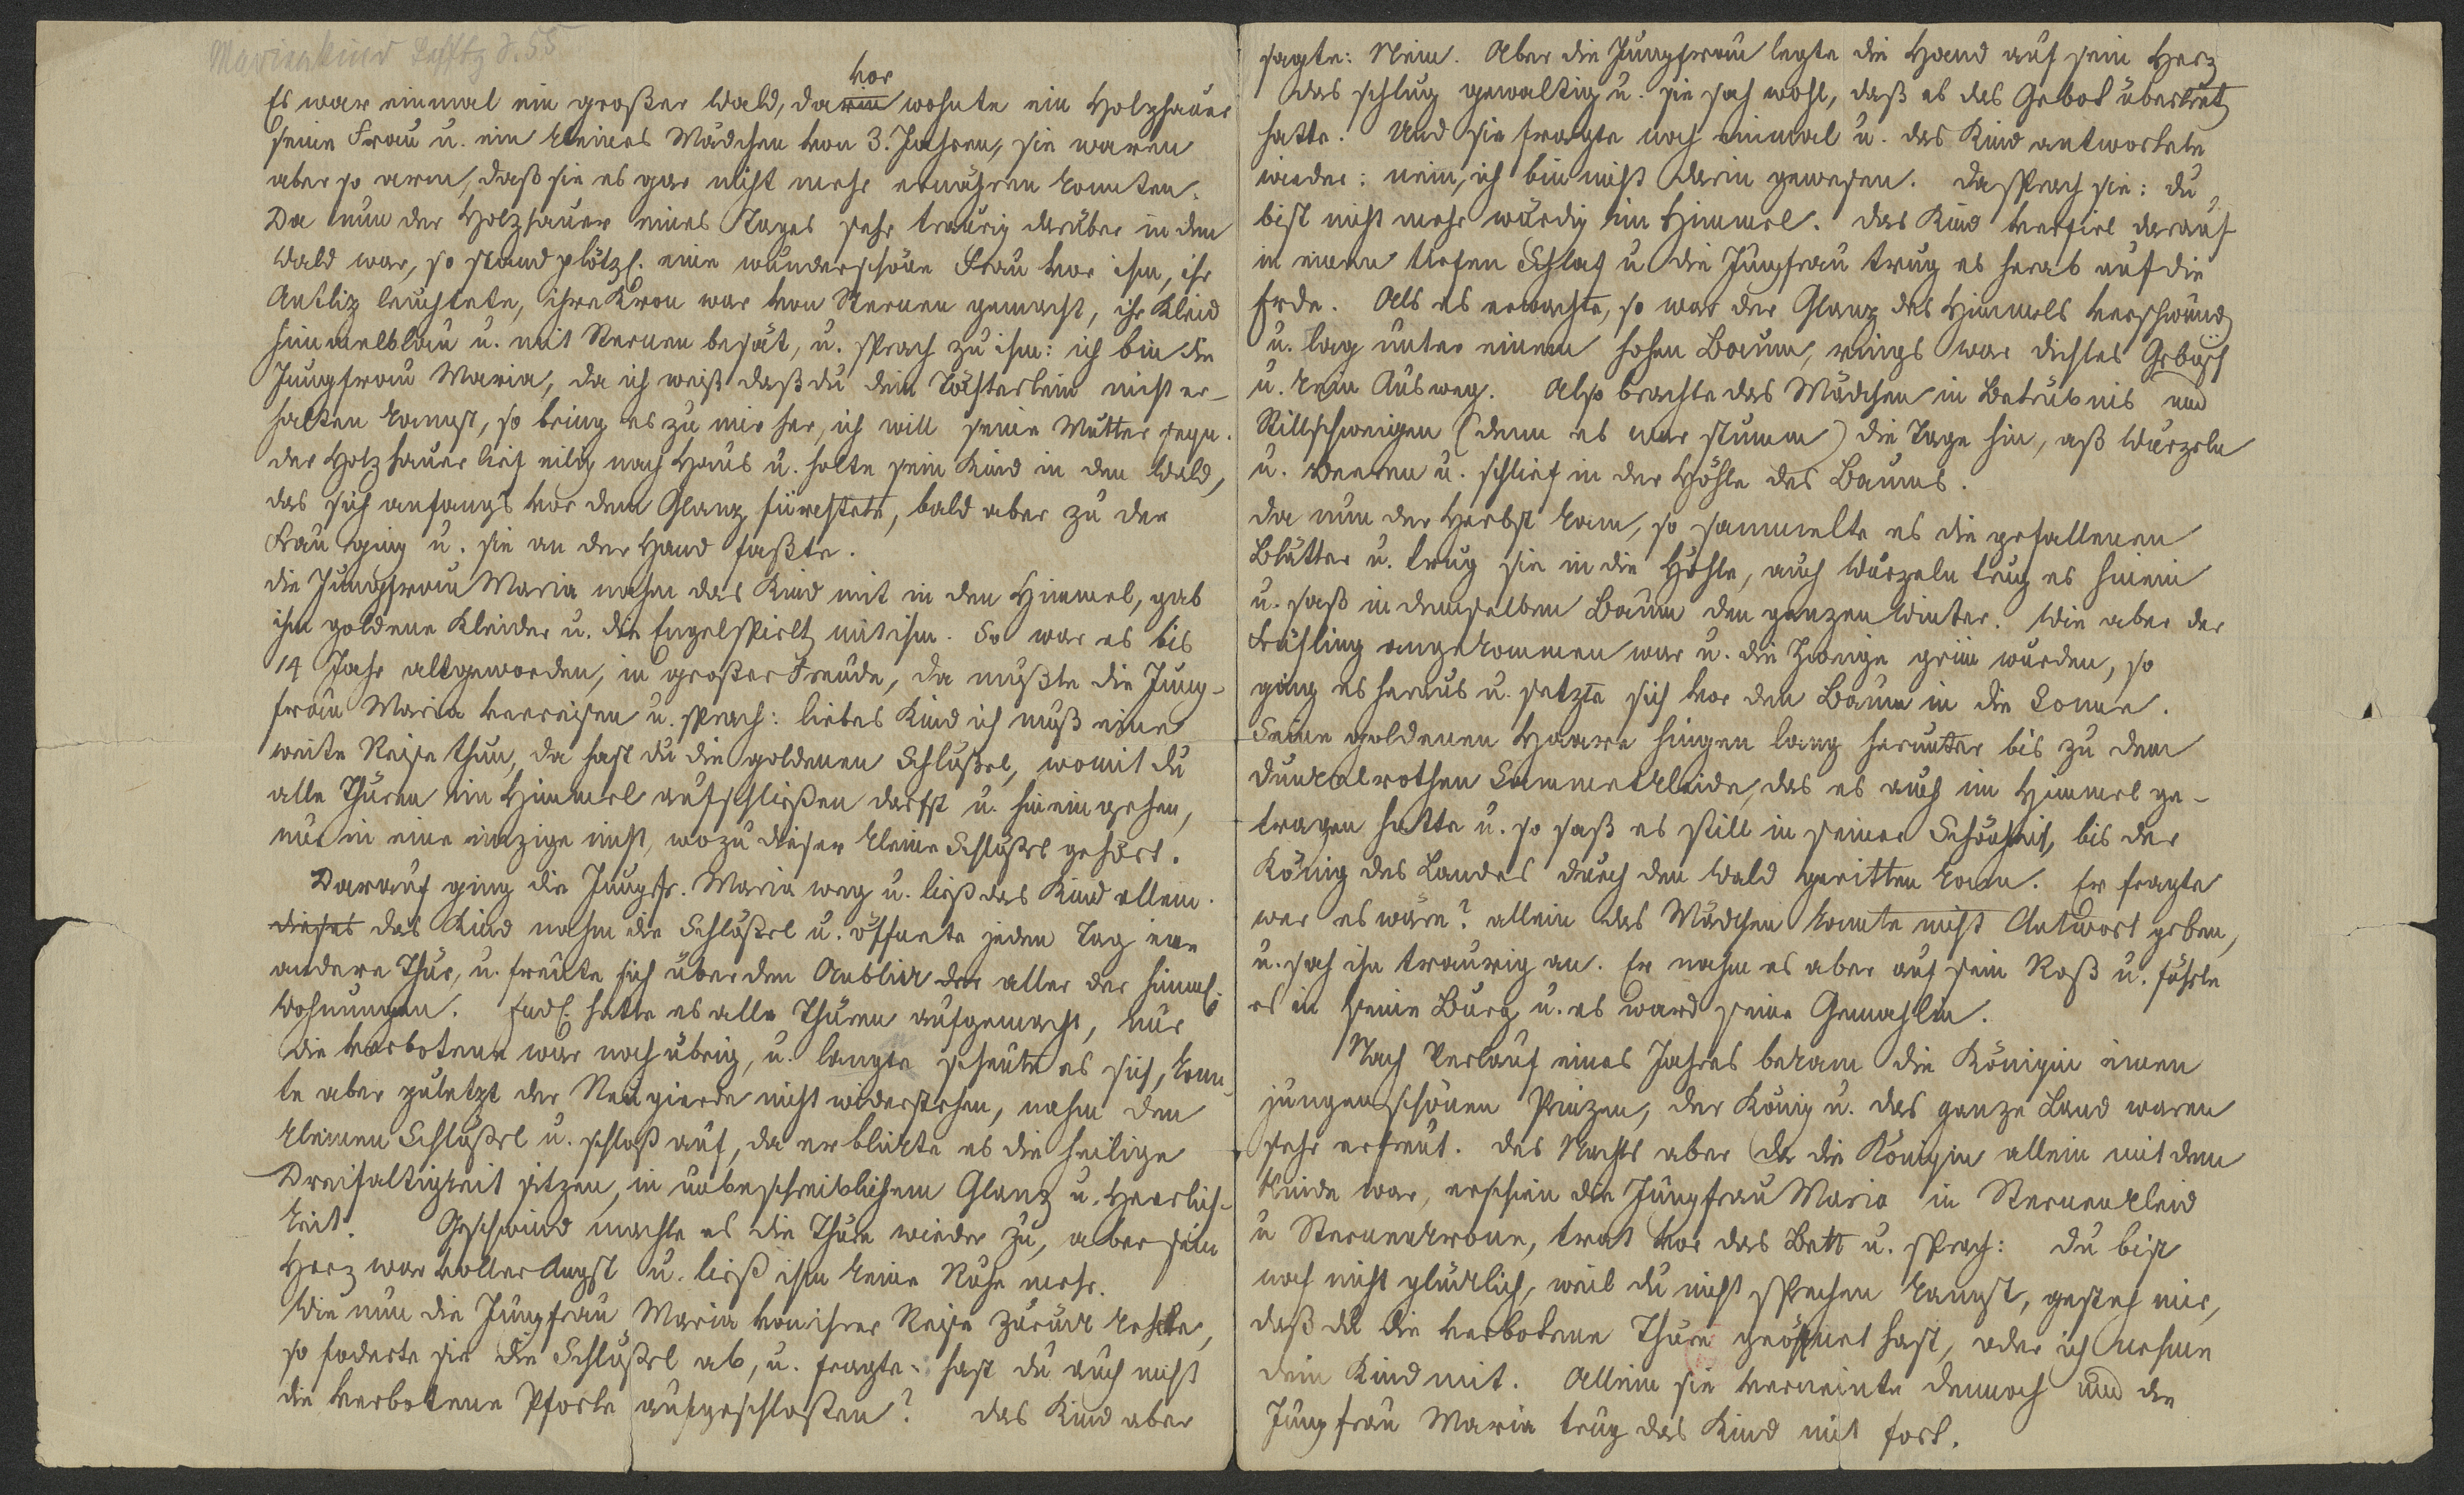 Marienkind Lefftz S. 55
vor
Es war einmal ein großer Wald, darin wohnte ein Holzhauer
seine Frau u. ein kleines Mädchen von 3. Jahren, sie waren
aber so arm, daß sie es gar nicht mehr ernähren konnten.
Da nun der Holzhauer eines Tages sehr traurig darüber in dem
Wald war, so stand plötzl. eine wunderschöne Frau vor ihm, ihr
Antliz leuchtete, ihre Kron war von Sternen gemacht, ihr Kleid
himmelblau u. mit Sternen besät, u. sprach zu ihm: ich bin die
Jungfrau Maria, da ich weiß daß du dein Töchterlein nicht er-
halten kannst, so bring es zu mir her, ich will seine Mutter seyn.
der Holzhauer lief eilig nach Haus u. holte sein Kind in den Wald,
das sich anfangs vor dem Glanz fürchtete, bald aber zu der
Frau ging u. sie an der Hand faßte.
die Jungfrau Maria nahm das Kind mit in den Himmel, gab
ihm goldene Kleider u. die Engel spielt mit ihm. So war es bis
14 Jahr alt geworden, in großer Freude, da mußte die Jung-
frau Maria verreisen u. sprach: liebes Kind ich muß eine
weite Reise thun, da hast du die goldenen Schlüßel, womit du
alle Thüren im Himmel aufschließen darfst u. hinein gehen,
nur in eine einzige nicht, wozu dieser kleine Schlüßel gehört.
Darauf ging die Jungfr. Maria weg u. ließ das Kind allein.
dieses das Kind nahm die Schlüßel u. öffnete jeden Tag eine
andere Thür, u. freute sich über den Anblick der aller der himml.
Wohnungen. Endl. hatte es alle Thüren aufgemacht, nur
die verbotene war noch übrig, u. lange scheute es sich, konn-
te aber zuletzt der Neugierde nicht widerstehen, nahm den
kleinen Schlüßel u. schloß auf, da erblickte es die heilige
Dreifaltigkeit sitzen, in unbeschreiblichem Glanz u. Herrlich-
keit. Geschwind machte es die Thüre wieder zu, aber sein
Herz war voller Angst u. ließ ihm keine Ruhe mehr.
Wie nun die Jungfrau Maria von ihrer Reise zurück kehrte,
so foderte sie die Schlüßel ab, u. fragte: hast du auch nicht
die verbotene Pforte aufgeschloßen? das Kind aber
sagte: Nein. Aber die Jungfrau legte die Hand auf sein Herz
das schlug gewaltig u. sie sah wohl, daß es das Gebot übertret
hatte. Und sie fragte noch einmal u. das Kind antwortete
wieder: nein, ich bin nicht darin gewesen. da sprach sie: du
bist nicht mehr würdig im Himmel. das Kind verfiel darauf
in einen tiefen Schlaf u. die Jungfrau trug es herab auf die
Erde. Als es erwachte, so war der Glanz des Himmels verschwund
u. lag unter einem hohen Baum, rings war dichtes Gebüsch
u. kein Ausweg. Also brachte das Mädchen in Betrübnis und
Stillschweigen (denn es war stumm) die Tage hin, aß Wurzeln
u. Beeren u. schlief in der Höhle des Baums.
da nun der Herbst kam, so sammelte es die gefallenen
Blätter u. trug sie in die Höhle, auch Wurzeln trug es hinein
u. saß in demselben Baum den ganzen Winter. Wie aber der
Frühling angekommen war u. die Zweige grün wurden, so
ging es heraus u. setzte sich vor den Baum in die Sonne.
Seine goldenen Haare hingen lang herunter bis zu dem
dunkelrothen Sammetkleide, das es auch im Himmel ge-
tragen hatte u. so saß es still in seiner Schönheit, bis der
König des Landes durch den Wald geritten kam. Er fragte
wer es wäre? allein das Mädchen konnte nicht Antwort geben,
u. sah ihn traurig an. Er nahm es aber auf sein Roß u. führte
es in seine Burg u. es ward seine Gemahlin.
Nach Verlauf eines Jahres bekam die Königin einen
jungen schönen Prinzen, der König u. das ganze Land waren
sehr erfreut. des Nachts aber da die Königin allein mit dem
Kinde war, erschien die Jungfrau Maria in Sternenkleid
u Sternenkrone, trat vor das Bett u. sprach: du bist
noch nicht glücklich, weil du nicht sprechen kannst, gesteh mir,
daß du die verbotene Thüre geöffnet hast, oder ich nehme
dein Kind mit. Allein sie verneinte dennoch und die
Jungfrau Maria trug das Kind mit fort.